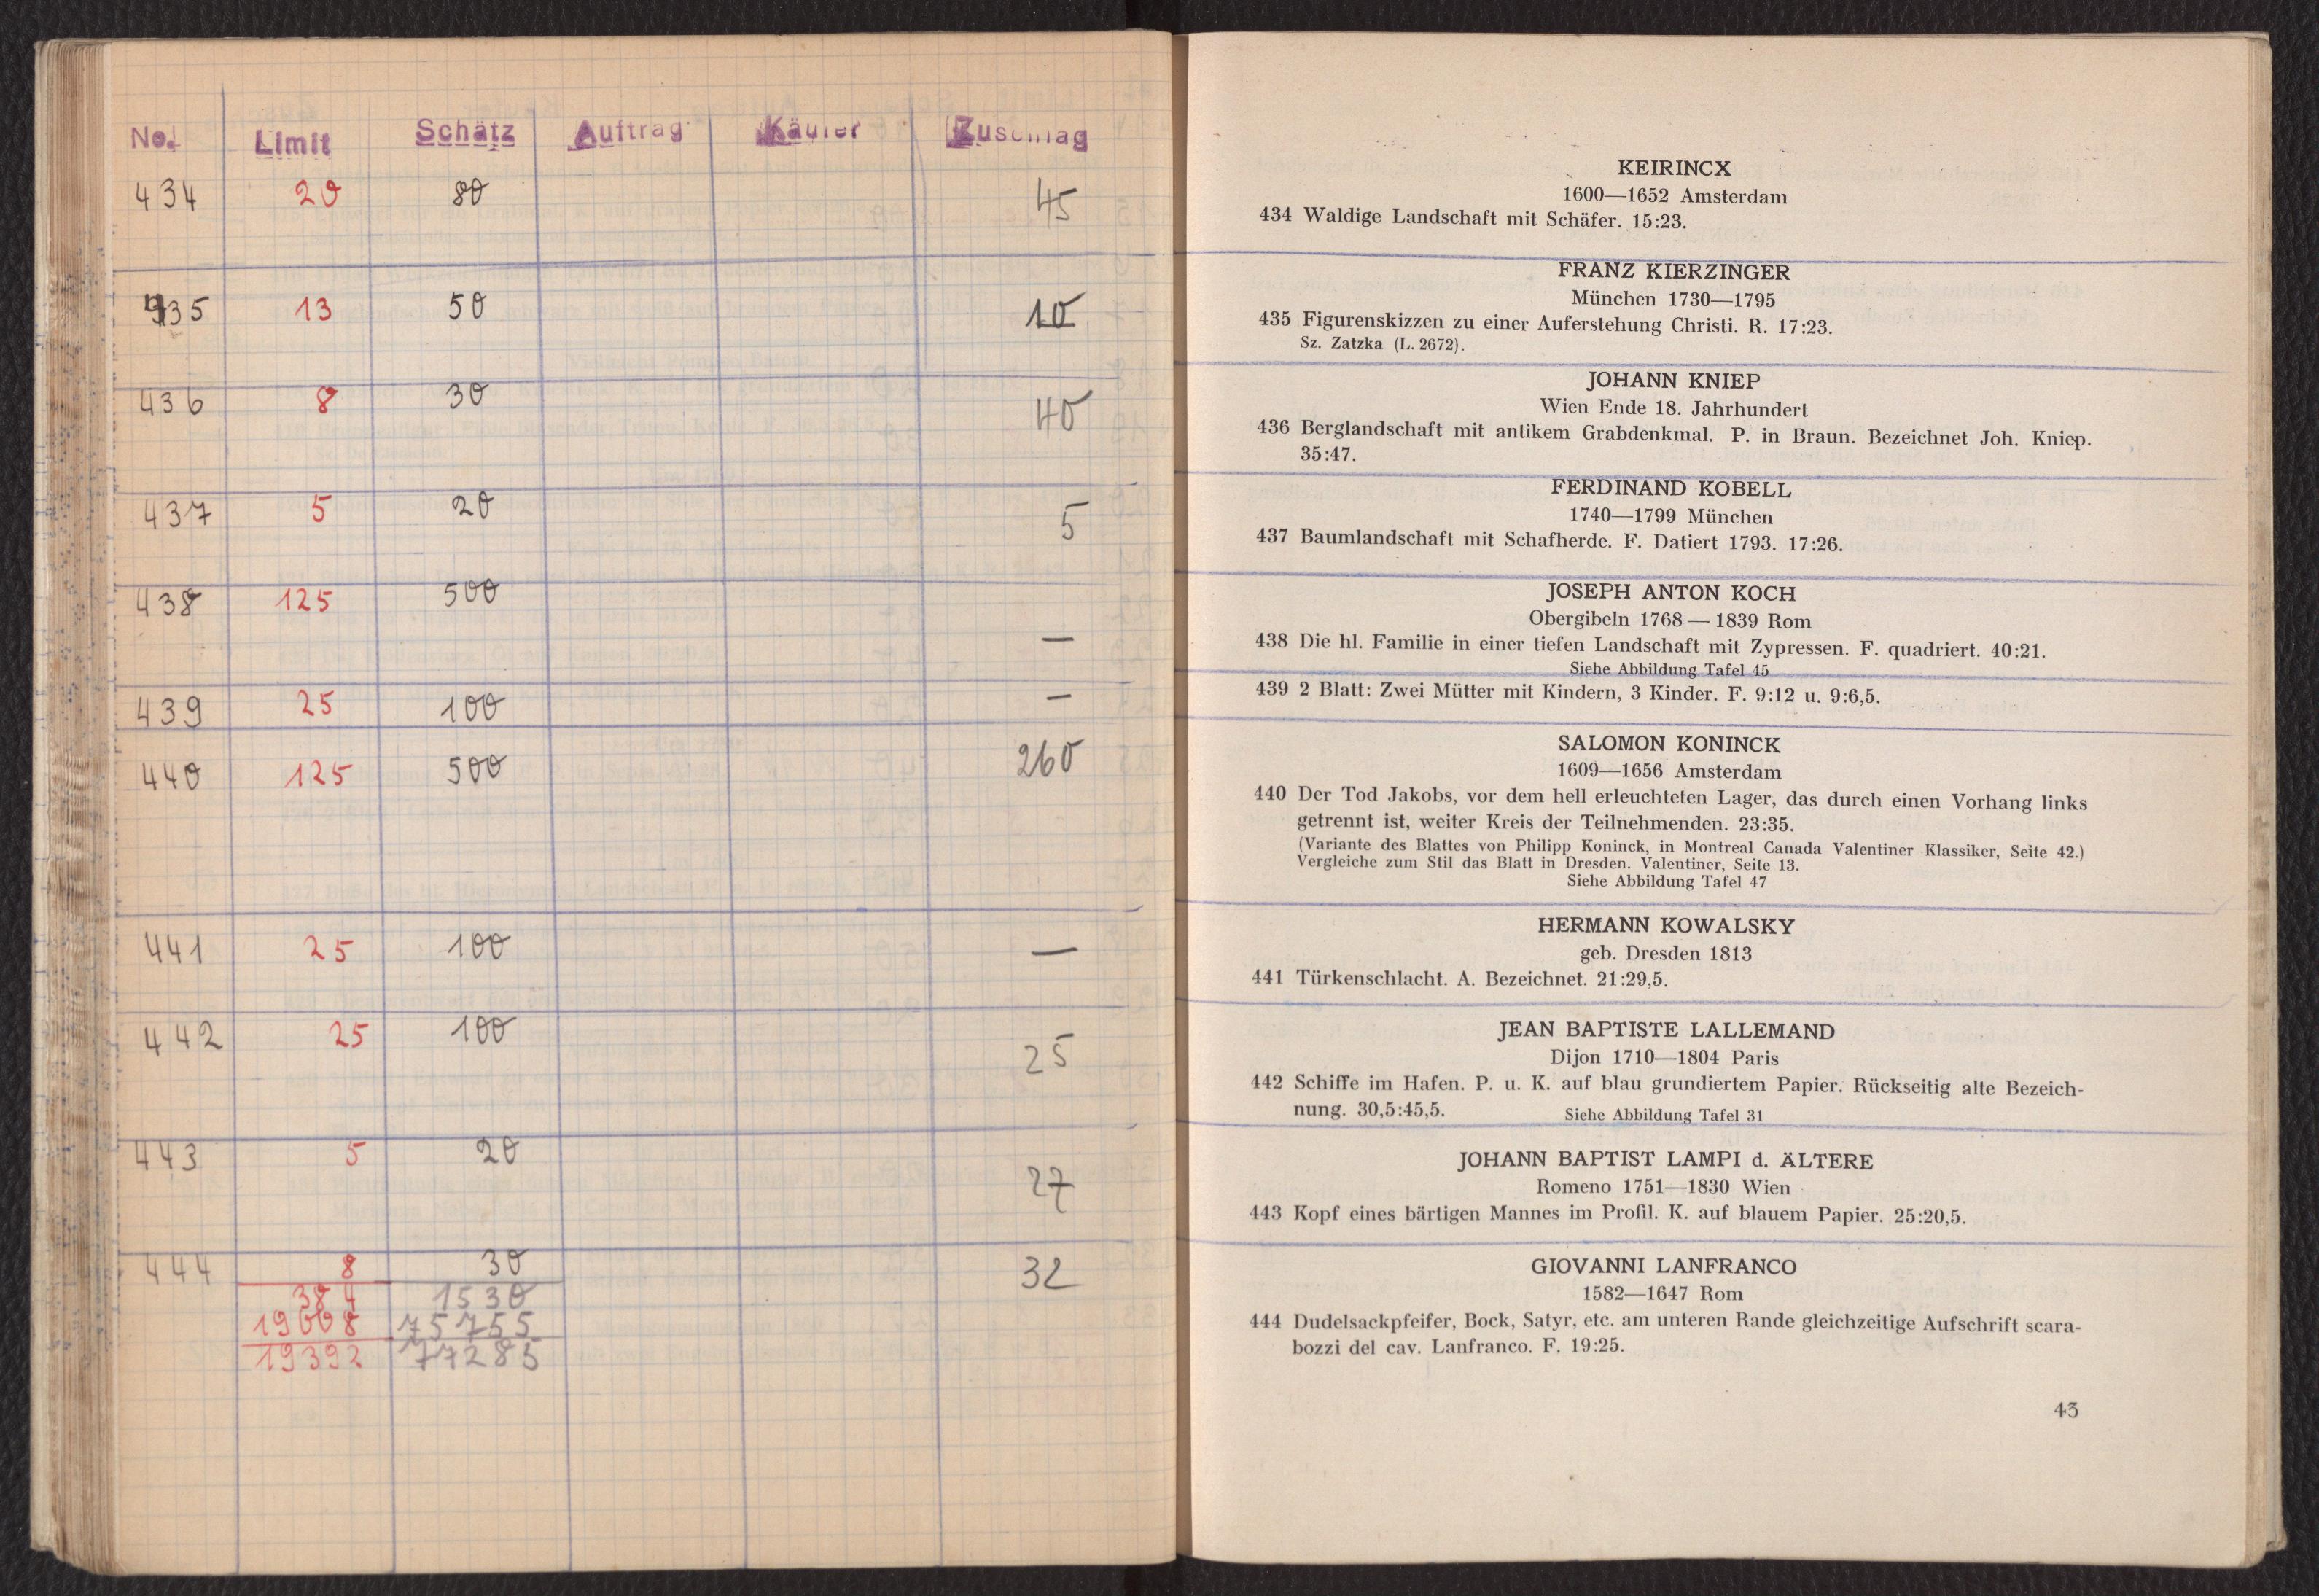 No. Limit Schätz Auftrag Käufer Zuschlag
434 20 80 45
435 13 50 10
436 8 30 40
437 5 20 5
438 125 500 —
439 25 100 —
440 125 500 260
441 25 100 —
442 25 100 25
443 5 20 27
444 8 30 32
384 1530
19008 75755
19392 77285
KEIRINCX
1600—1652 Amsterdam
434 Waldige Landschaft mit Schäfer. 15:23.
FRANZ KIERZINGER
München 1730—1795
435 Figurenskizzen zu einer Auferstehung Christi. R. 17:23.
Sz. Zatzka (L. 2672).
JOHANN KNIEP
Wien Ende 18. Jahrhundert
436 Berglandschaft mit antikem Grabdenkmal. P. in Braun. Bezeichnet Joh. Kniep.
35:47.
FERDINAND KOBELL
1740—1799 München
437 Baumlandschaft mit Schafherde. F. Datiert 1793. 17:26.
JOSEPH ANTON KOCH
Obergibeln 1768 — 1839 Rom
438 Die hl. Familie in einer tiefen Landschaft mit Zypressen. F. quadriert. 40:21.
Siehe Abbildung Tafel 45
439 2 Blatt: Zwei Mütter mit Kindern, 3 Kinder. F. 9:12 u. 9:6,5.
SALOMON KONINCK
1609—1656 Amsterdam
440 Der Tod Jakobs, vor dem hell erleuchteten Lager, das durch einen Vorhang links
getrennt ist, weiter Kreis der Teilnehmenden. 23:35.
(Variante des Blattes von Philipp Koninck, in Montreal Canada Valentiner Klassiker, Seite 42.)
Vergleiche zum Stil das Blatt in Dresden. Valentiner, Seite 13.
Siehe Abbildung Tafel 47
HERMANN KOWALSKY
geb. Dresden 1813
441 Türkenschlacht. A. Bezeichnet. 21:29,5.
JEAN BAPTISTE LALLEMAND
Dijon 1710—1804 Paris
442 Schiffe im Hafen. P. u. K. auf blau grundiertem Papier. Rückseitig alte Bezeich-
nung. 30,5:45,5. Siehe Abbildung Tafel 31
JOHANN BAPTIST LAMPI d. ÄLTERE
Romeno 1751—1830 Wien
443 Kopf eines bärtigen Mannes im Profil. K. auf blauem Papier. 25:20,5.
GIOVANNI LANFRANCO
1582—1647 Rom
444 Dudelsackpfeifer, Bock, Satyr, etc. am unteren Rande gleichzeitige Aufschrift scara-
bozzi del cav. Lanfranco. F. 19:25.
43